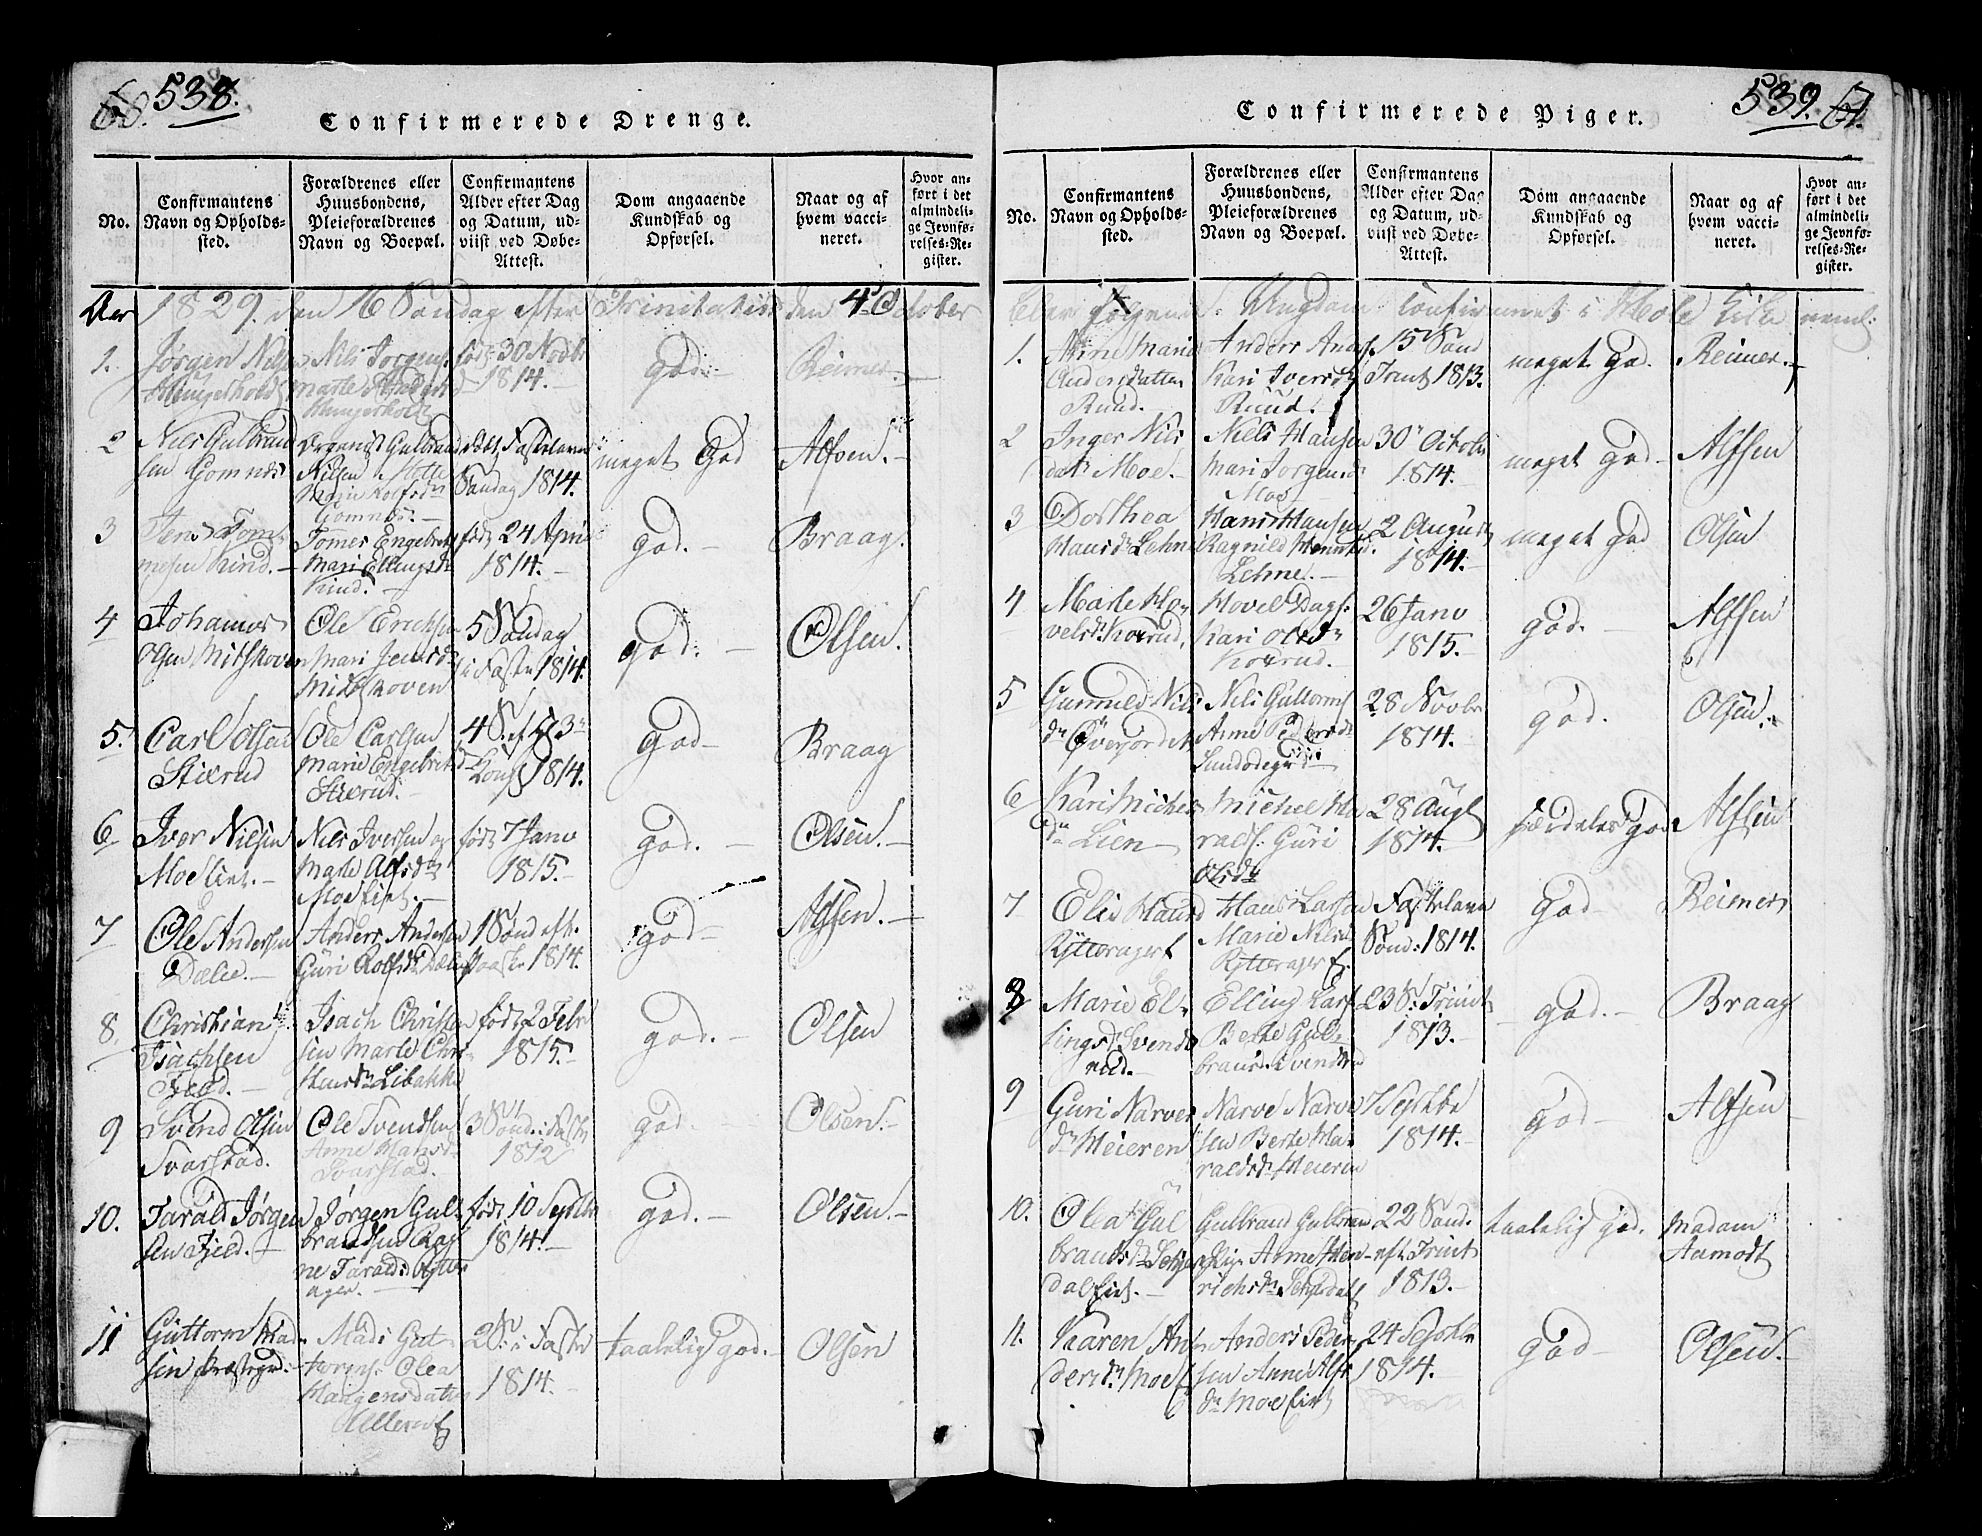 68. 538.
Confirmerede Drenge.
No.
Confirmantens
Navn og Opholds-
sted.
Forældrenes eller
Huusbondens,
Pleieforældrenes
Navn og Boepæl.
Confirmantens
Alder efter Dag
og Datum, ud-
viist ved Døbe-
Attest.
Dom angaaende
Kundskab og
Opførsel.
Naar og af
hvem vacci-
neret.
Hvor an-
ført i det
almindeli-
ge Jevnfø-
relses-Re-
gister.
Aar 1829. den 16 Søndag efter Trinitatis den 4 October
1.
Jørgen Nils
Nils Jørgens
Marte
født 30 Novbr
1814.
god
Reimer
2
Niels Gulbrand
sen Gomnæs
Organist Gulbrand
Nilsen Mette
Marie Rolfsdr
Gomnæs.
født Fastelavns
Søndag 1814.
meget God
Alfsen.
3
Jens Tom
mesen Kind.
Tomes Engebrets
Mari Ellingsdr
Kind.
født 24 April
1814.
god.
Braag.
4
Johannes
Olsen
Ole Erichsen
Mari Jensdr
5 Søndag
i Faste 1814.
god.
Olsen.
5.
Carl Olsen
Stixrud
Ole Carlsen
Marie Engebretsd
Stixrud.
1814.
God
Braag
6
Iver Nielsen
Moe
Niels Iversen og
Marte Alfsdr
født 7 Janv
1815.
god.
Olsen.
7
Ole Andersen
Dælie.
Anders Andersen
Guri Rolfsdr Dælie
1 Sønd eft.
Paaske 1814.
god
Alfsen.
8.
Christian
Isachsen
Fjeld.
Isach Christen
sen Marte Chri-
stensdr Libakke
født 2 Febr
1815.
god.
Olsen
9
Svend Olsen
Svarstad.
Ole Svendsen
Anne Hansd
Svarstad.
3 Sønd. i Faste
1812
god.
Olsen.
10.
Tarald Jørgen
sen Fjeld.
Jørgen Gul-
brandsen
ne Taraldsd Rytter
ager.
født 10 Septbr
1814.
god.
Olsen.
11
Guttorm Mad-
sen
Mads Gut
torms. Olea
Haagensdatter
2 S. i Faste
1814.
taalelig god.
Olsen
539. 67.
Confirmerede Piger.
No.
Confirmantens
Navn og Opholds-
sted.
Forældrenes eller
Huusbondens,
Pleieforældrenes
Navn og Boepæl.
Confirmantens
Alder efter Dag
og Datum, ud-
viist ved Døbe-
Attest.
Dom angaaende
Kundskab og
Opførsel.
Naar og af
hvem vacci-
neret.
Hvor an-
ført i det
almindeli-
ge Jevnfø-
relses-Re-
gister.
blev følgende Ungdom confirmeret i Hole Kirke neml:
1.
Anne Marie
Andersdatter
Ruud.
Anders And
Kari Iversdr
Ruud.
15 Sønd
Trinit 1813.
meget god.
Reimer.
2
Inger Nils
datr Moe.
Niels Hansen
Mari Jørgensd
Moe
30 Octobr
1814.
meget god
Alfsen
3
Dorthea
Hansdr Lehne
Hans Hansen
Ragnild
Lehne.
2 August
1814.
meget god
Olsen
4
Marte Ho
velsdr
Hovel Dags.
Kari Olsdr
26 Janv
1815.
god.
Alfsen
5
Gunnild Nils
dr
Nils Guttorms
Anne Pedersdr
28 Novbr
1814.
god.
Olsen.
6
Kari Michels
dr Lien
Michel Ha
ralds. Guri
Olsdr
28 Augt
1814.
særdeles god
Alfsen
7
Elis Hansd
Rytterager
Hans Larsen
Marie Nilsd
Rytterager
Fastelavns
Sønd: 1814.
God
Reimers
8
Marie El-
lingsdr Svends
rud.
Elling Lars
Berte Gul-
brandsd Svendsrud
23 S. Trinit
1813.
god.
Braag
9
Guri Narves
dr Meieren
Narve Narve
sen Berte Ha-
raldsdr Meieren
7 Septbr
1814.
god
Alfsen
10.
Olea Gul
brandsdr
Gulbrand Gulbran
Anne Hen-
richsdr
22 Sønd.
eft Trinit
1813.
taalelig god.
Madam
Aamodt
11.
Karen An-
dersdr Moe
Anders Peder
sen Anne Alfs
dr Moe
24 Septbr
1814.
god
Olsen.